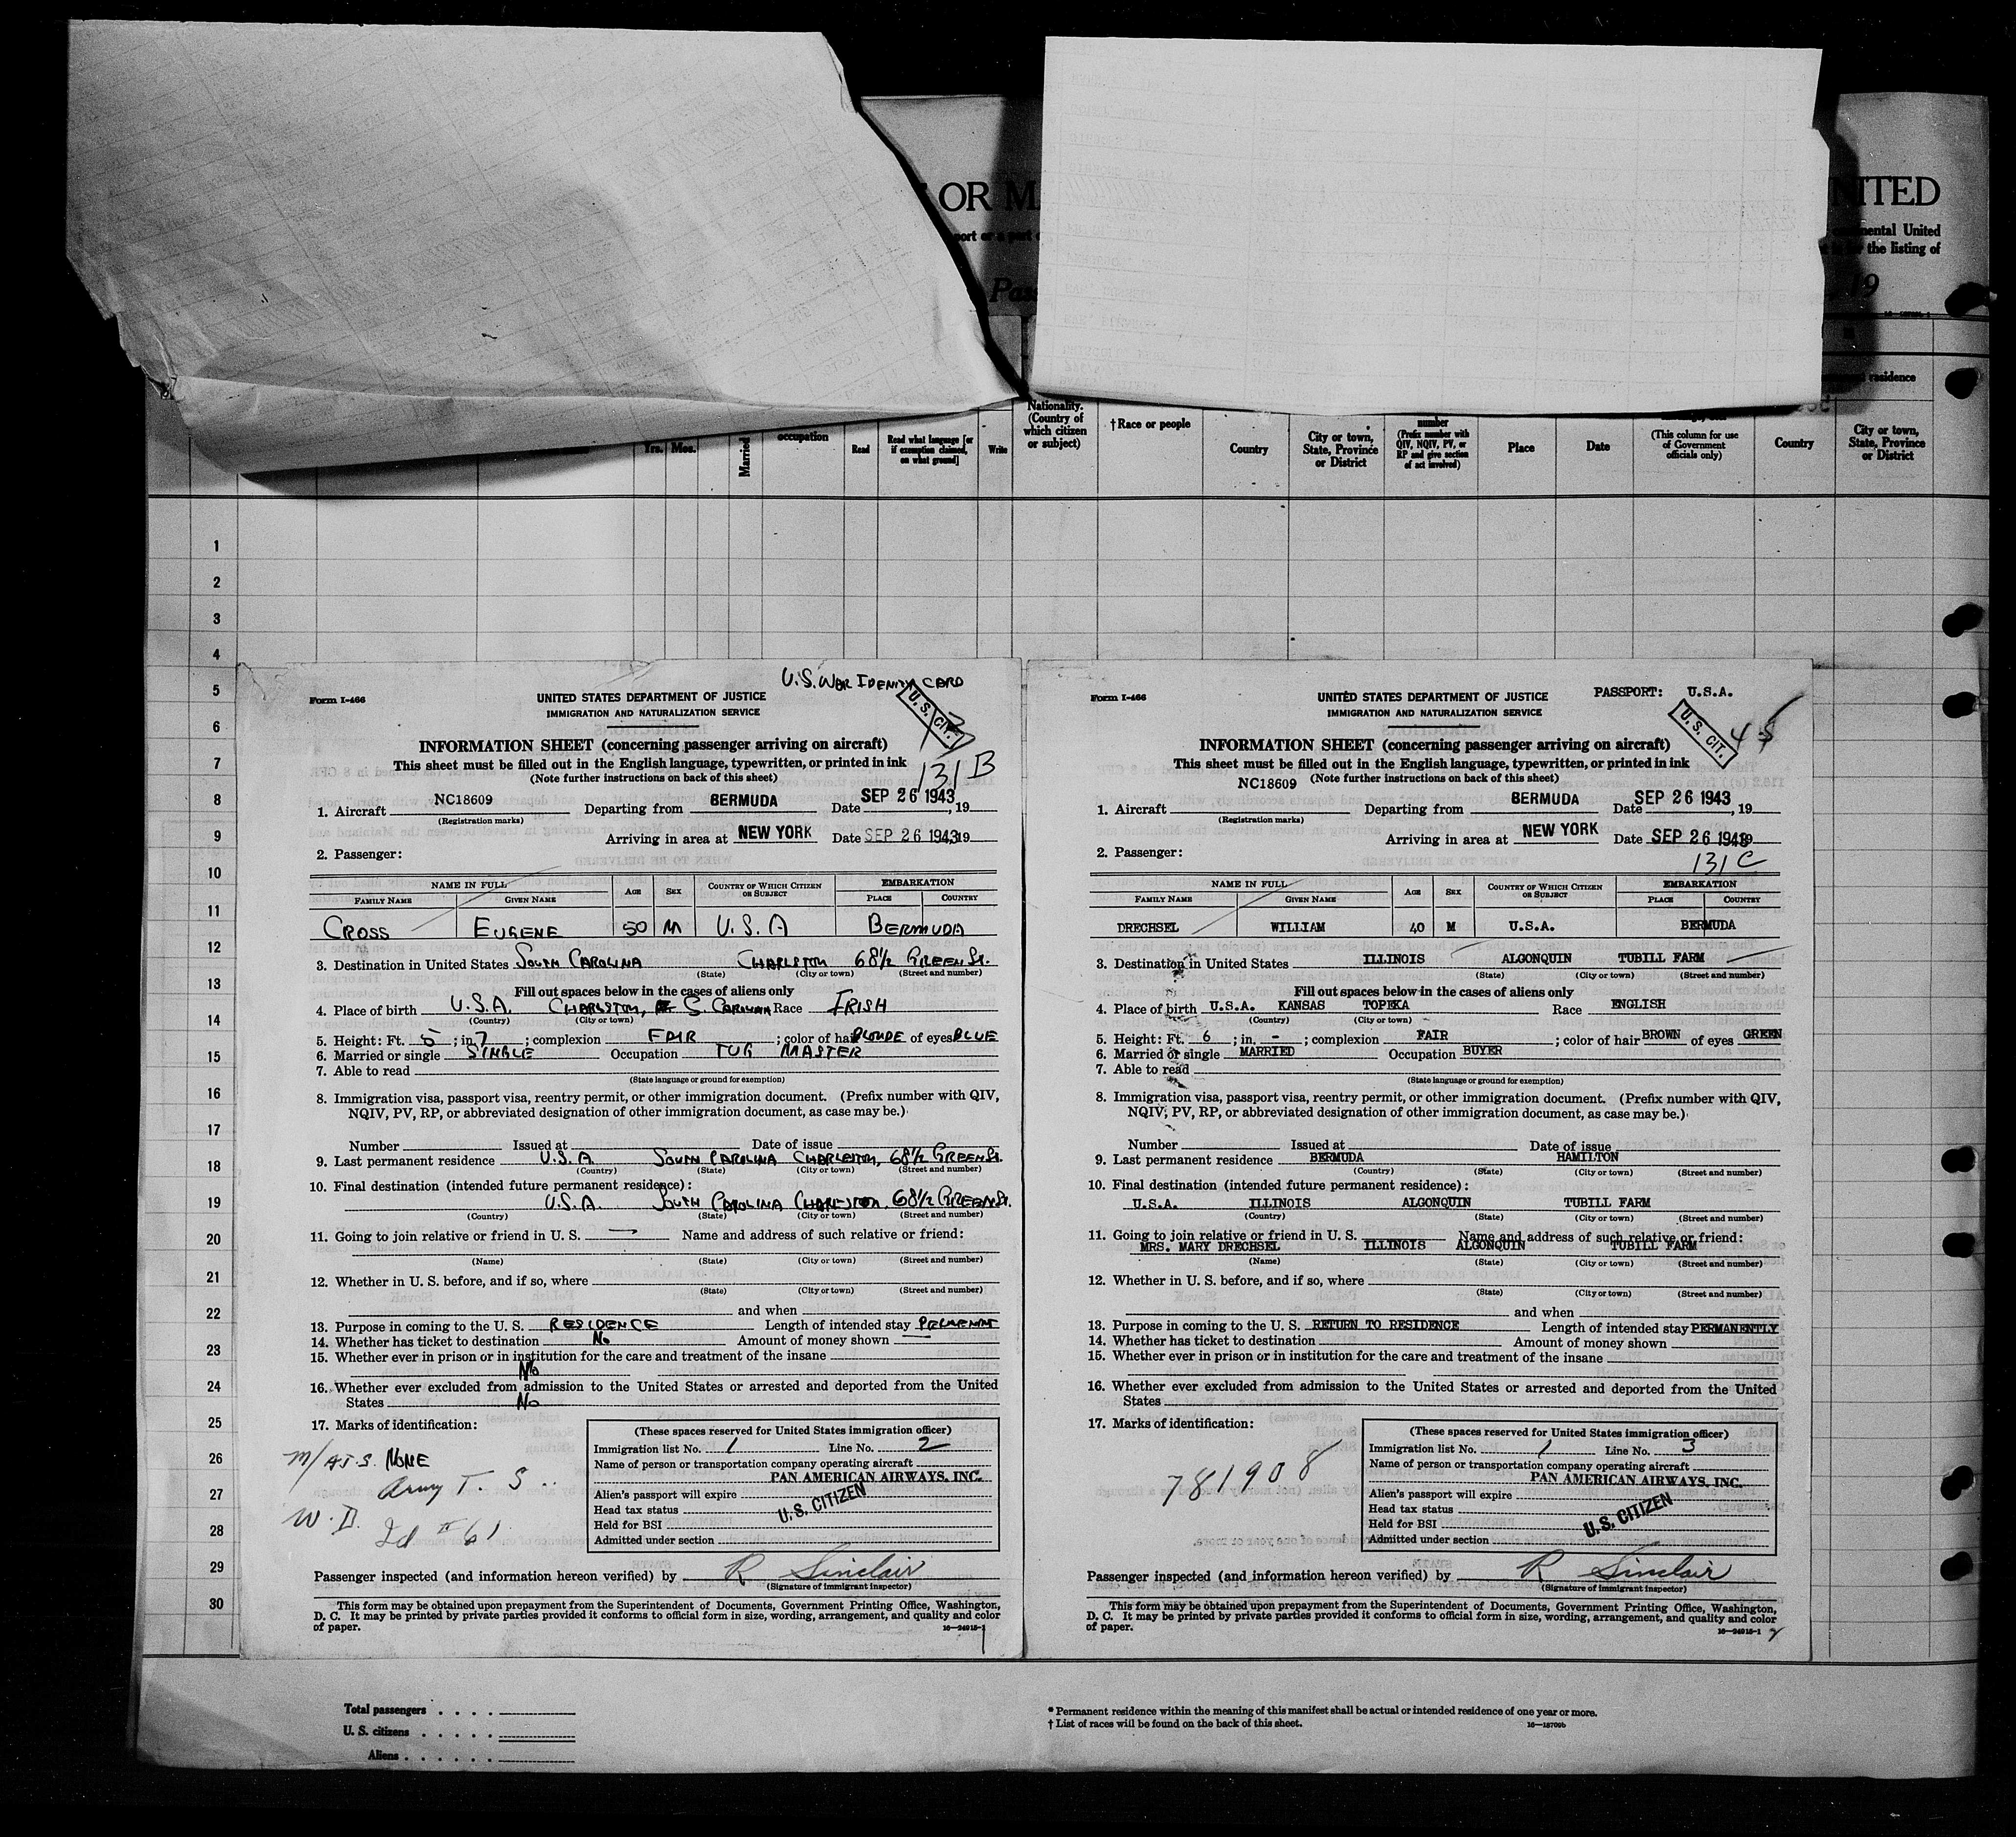 OR M
NITED
port or a part o
mental United
the listing of
Pas
19
residence
Yrs. Mos.
Married
occupation
Read
Read what language [or if exemption claimed, on what ground]
Write
Nationality. (Country of which citizen or subject)
†Race or people
Country
City or town, State, Province or District
number (Prefix number with QIV, NQIV, PV, or RP and give section of act involved)
Place
Date
(This column for use of Government officials only)
Country
City or town, State, Province or District
1
2
3
4
5
6
7
8
9
10
11
12
13
14
15
16
17
18
19
20
21
22
23
24
25
26
27
28
29
30
U.S. WAR IDENITY CARD
Form I-466
UNITED STATES DEPARTMENT OF JUSTICE
IMMIGRATION AND NATURALIZATION SERVICE
U. S. CIT.
INFORMATION SHEET (concerning passenger arriving on aircraft)
This sheet must be filled out in the English language, typewritten, or printed in ink
(Note further instructions on back of this sheet)
131 B
1. Aircraft NC18609 Departing from BERMUDA Date SEP 26 1943, 19
(Registration marks)
Arriving in area at NEW YORK Date SEP 26 1943, 19
2. Passenger:
NAME IN FULL AGE SEX COUNTRY OF WHICH CITIZEN OR SUBJECT EMBARKATION
FAMILY NAME GIVEN NAME PLACE COUNTRY
CROSS EUGENE 50 M U.S.A BERMUDA
3. Destination in United States SOUTH CAROLINA CHARLSTON 68½ GREEN St.
(State) (City or town) (Street and number)
Fill out spaces below in the cases of aliens only
4. Place of birth U.S.A. CHARLSTON, S. CAROLINA Race IRISH
(Country) (City or town)
5. Height: Ft. 5; in 7; complexion FAIR; color of hair BLONDE of eyes BLUE
6. Married or single SINGLE Occupation TUG MASTER
7. Able to read
(State language or ground for exemption)
8. Immigration visa, passport visa, reentry permit, or other immigration document. (Prefix number with QIV,
NQIV, PV, RP, or abbreviated designation of other immigration document, as case may be.)
Number Issued at Date of issue
9. Last permanent residence U.S.A SOUTH CAROLINA CHARLESTON, 68½ GREEN St.
(Country) (State) (City or town) (Street and number)
10. Final destination (intended future permanent residence):
U.S.A. SOUTH CAROLINA CHARLESTON. 68½ GREEN St.
(Country) (State) (City or town) (Street and number)
11. Going to join relative or friend in U. S. — Name and address of such relative or friend:
(Name) (State) (City or town) (Street and number)
12. Whether in U. S. before, and if so, where
(State) (City or town) (Street and number)
and when
13. Purpose in coming to the U. S. RESIDENCE Length of intended stay
14. Whether has ticket to destination No Amount of money shown —
15. Whether ever in prison or in institution for the care and treatment of the insane
No
16. Whether ever excluded from admission to the United States or arrested and deported from the United
States No
17. Marks of identification:
NONE
Army T. S.
W. D. Id # 61
(These spaces reserved for United States immigration officer)
Immigration list No. 1 Line No. 2
Name of person or transportation company operating aircraft
PAN AMERICAN AIRWAYS, INC.
Alien's passport will expire
Head tax status U. S. CITIZEN
Held for BSI
Admitted under section
Passenger inspected (and information hereon verified) by R Sinclair
(Signature of immigrant inspector)
This form may be obtained upon prepayment from the Superintendent of Documents, Government Printing Office, Washington,
D. C. It may be printed by private parties provided it conforms to official form in size, wording, arrangement, and quality and color
of paper.
16—24915-1
Form I-466
UNITED STATES DEPARTMENT OF JUSTICE
PASSPORT: U.S.A.
IMMIGRATION AND NATURALIZATION SERVICE
U. S. CIT.
INFORMATION SHEET (concerning passenger arriving on aircraft)
This sheet must be filled out in the English language, typewritten, or printed in ink
(Note further instructions on back of this sheet)
1. Aircraft NC18609 Departing from BERMUDA Date SEP 26 1943, 19
(Registration marks)
Arriving in area at NEW YORK Date SEP 26 1943 19
2. Passenger:
131 C
NAME IN FULL AGE SEX COUNTRY OF WHICH CITIZEN OR SUBJECT EMBARKATION
FAMILY NAME GIVEN NAME PLACE COUNTRY
DRECHSEL WILLIAM 40 M U.S.A. BERMUDA
3. Destination in United States ILLINOIS ALGONQUIN TUBILL FARM
(State) (City or town) (Street and number)
Fill out spaces below in the cases of aliens only
4. Place of birth U.S.A. KANSAS TOPEKA Race ENGLISH
(Country) (City or town)
5. Height: Ft. 6; in. -; complexion FAIR; color of hair BROWN of eyes GREEN
6. Married or single MARRIED Occupation BUYER
7. Able to read
(State language or ground for exemption)
8. Immigration visa, passport visa, reentry permit, or other immigration document. (Prefix number with QIV,
NQIV, PV, RP, or abbreviated designation of other immigration document, as case may be.)
Number Issued at Date of issue
9. Last permanent residence BERMUDA HAMILTON
(Country) (State) (City or town) (Street and number)
10. Final destination (intended future permanent residence):
U.S.A. ILLINOIS ALGONQUIN TUBILL FARM
(Country) (State) (City or town) (Street and number)
11. Going to join relative or friend in U. S. Name and address of such relative or friend:
MRS. MARY DRECHSEL ILLINOIS ALGONQUIN TUBILL FARM
(Name) (State) (City or town) (Street and number)
12. Whether in U. S. before, and if so, where
(State) (City or town) (Street and number)
and when
13. Purpose in coming to the U. S. RETURN TO RESIDENCE Length of intended stay PERMANENTLY
14. Whether has ticket to destination Amount of money shown
15. Whether ever in prison or in institution for the care and treatment of the insane
16. Whether ever excluded from admission to the United States or arrested and deported from the United
States
17. Marks of identification:
781908
(These spaces reserved for United States immigration officer)
Immigration list No. 1 Line No. 3
Name of person or transportation company operating aircraft
PAN AMERICAN AIRWAYS, INC.
Alien's passport will expire
Head tax status U. S. CITIZEN
Held for BSI
Admitted under section
Passenger inspected (and information hereon verified) by R Sinclair
(Signature of immigrant inspector)
This form may be obtained upon prepayment from the Superintendent of Documents, Government Printing Office, Washington,
D. C. It may be printed by private parties provided it conforms to official form in size, wording, arrangement, and quality and color
of paper.
16—24915-1
Total passengers
U. S. citizens
Aliens
* Permanent residence within the meaning of this manifest shall be actual or intended residence of one year or more.
† List of races will be found on the back of this sheet.
16—18709b